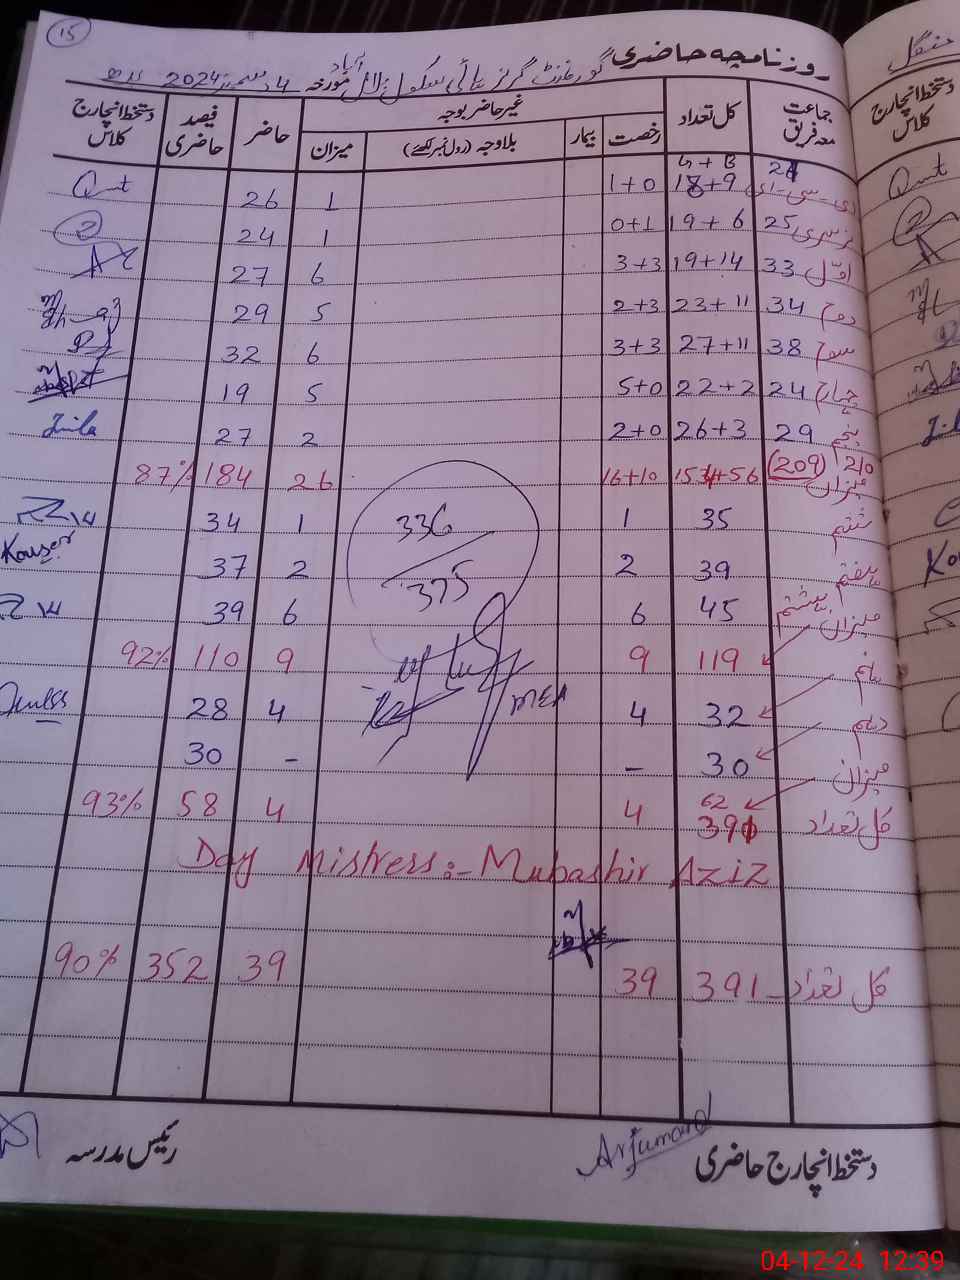 15
روزنامچہ حاضری گورنمنٹ گرلز ہائی سکول مورخہ 4 دسمبر 2024
جماعت معہ فریق کل تعداد غیر حاضر بوجہ حاضر فیصد حاضری دستخط انچارج کلاس
رخصت بیمار بلاوجہ (رول نمبر لکھئے) میزان
G + B
ای سی ای 18+9 1+0 1 26
نرسری 25 19+6 0+1 1 24
اول 33 19+14 3+3 6 27
دوم 34 23+11 2+3 5 29
سوم 38 27+11 3+3 6 32
چہارم 24 22+2 5+0 5 19
پنجم 29 26+3 2+0 2 27
میزان 210 (209) 154+56 16+10 26 184 87%
ششم 35 1 1 34
ہفتم 39 2 2 37 Kouser
ہشتم 45 6 6 39
میزان 119 9 9 110 92%
نہم 32 4 4 28
دہم 30 - - 30
میزان 62 4 4 58 93%
کل تعداد 391
336/375
MEA
Day Mistress:- Mubashir Aziz
کل تعداد - 391 39 39 352 90%
دستخط انچارج حاضری Arjumand رئیس مدرسہ
دستخط انچارج کلاس
04-12-24 12:39